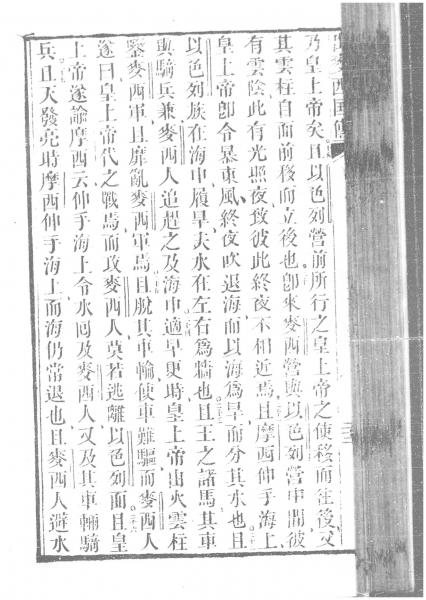 乃皇上帝矣且以色列營前所行之皇上帝之使移而往後又
其雲柱自面前移而立後也卽來麥西營與以色列營中間彼
有雲陰此有光照夜致彼此終夜不相近焉且摩西伸手海上
皇上帝卽令暴東風終夜吹退海而以海為旱而分其水也且
以色列族在海中履旱夫水在左右為牆也且王之諸馬其車
與騎兵兼麥西人追趕之及海中適早更時皇上帝由火雲柱
鑒麥西軍且靡亂麥西軍焉且脫其車輪使車難驅而麥西人
遂曰皇上帝代之戰焉而攻麥西人莫若逃離以色列面且皇
上帝遂諭摩西云伸手海上令水回及麥西人又及其車輛騎
兵且天發亮時摩西伸手海上而海仍常退也且麥西人避水